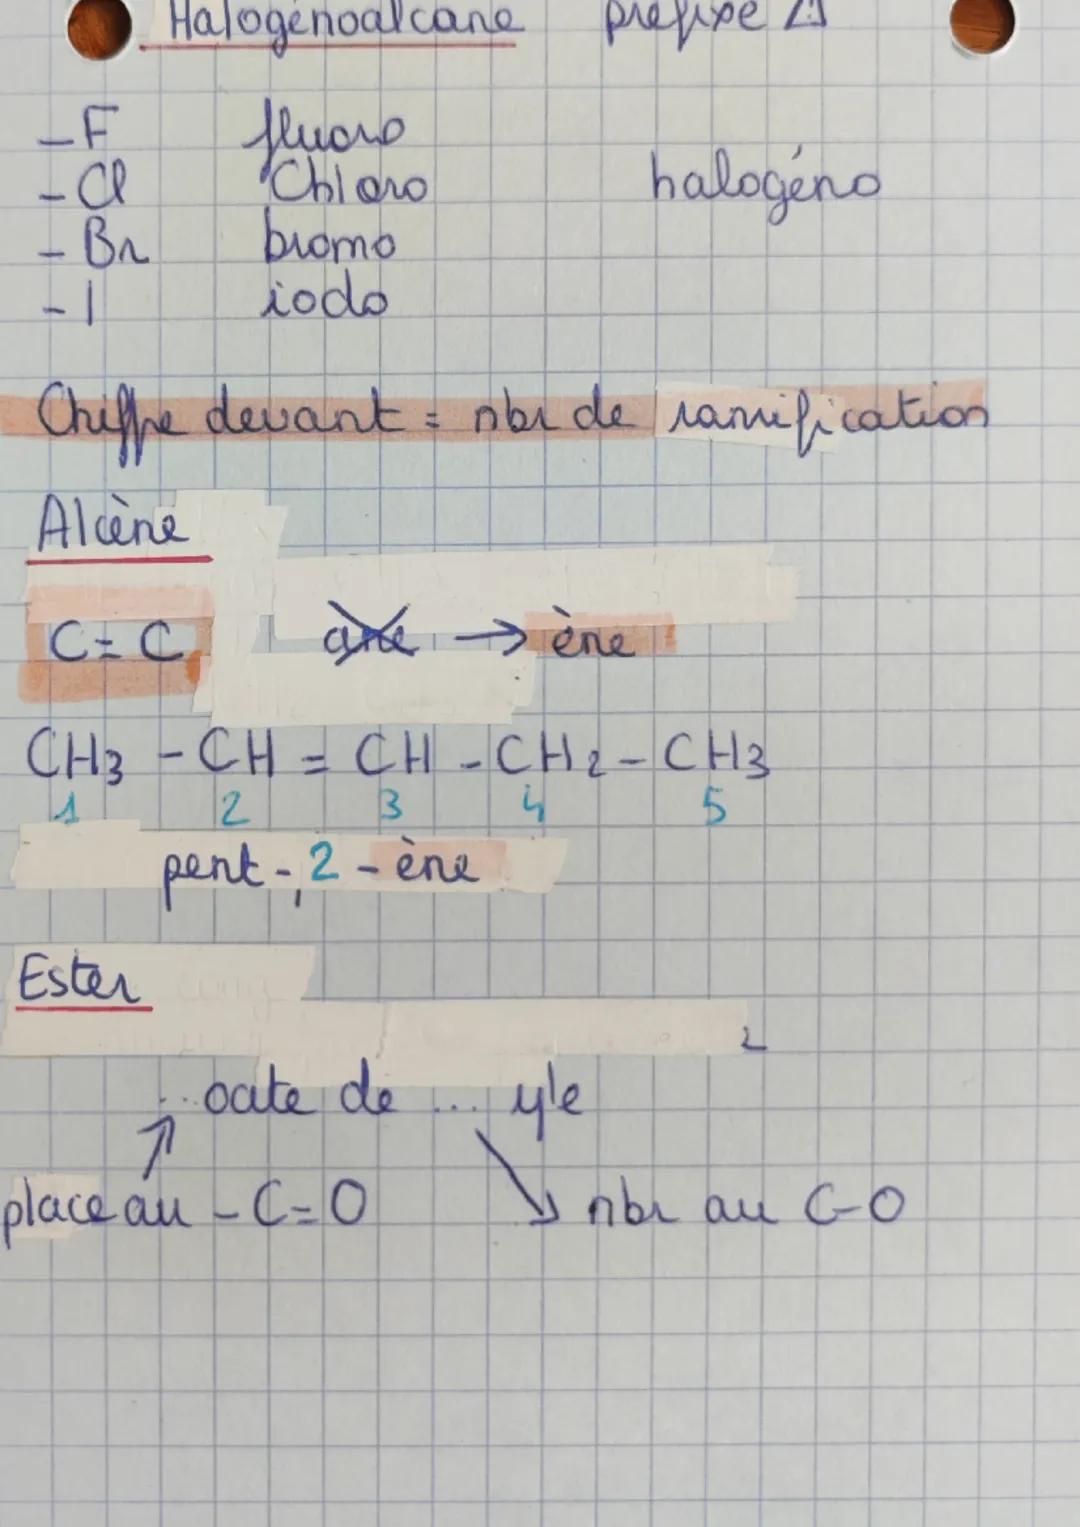 Halogénoalcane préfixe ⚠
-F fluoro
-Cl Chloro halogéno
-Br bromo
-I iodo
Chiffre devant = nbr de ramification
Alcène
C=C ane → ène
CH3 - CH = CH - CH2 - CH3
1 2 3 4 5
pent-, 2 -ène
Ester
...oate de ... yle
place au -C=O nbr au C-O